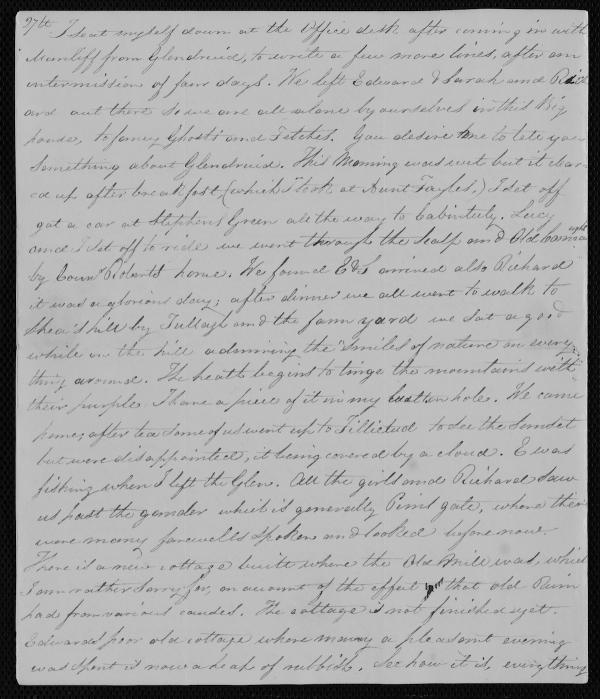 27th I seat myself down at the Office desk after coming in with
from Glendruid, to write a few more lines, after an
intermission of four days. We left Edward & Sarah and
and out there so we are all alone by ourselves in this Big
house, to fancy Ghosts and Fetches. You desire me to tell you
something about Glendruid. This Morning was wet but it clear-
ed up after breakfast, (which I took at Aunt Fayles,) I set off
got a car at Stephens Green all the way to Cabinteely. Lucy
and I set off to ride we went through the Scalp and Old
by Counr Roberts home. We found E&S arrived also Richard
it was a glorious day; after dinner we all went to walk to
Shea's hill by Tullagh and the farm yard we sat a good
while on the hill admiring the smiles of nature in every
thing around. The heath begins to tinge the mountains with
their purple I have a piece of it in my button hole. We came
home; after tea some of us went up to to see the Sunset
but were disappointed, it being covered by a cloud. E was
fishing when I left the Glen. All the girls and Richard saw
us past the gander which is generally gate, where there
were many farewells spoken and looked before now.
There is a new cottage built where the Old Mill was, which
I am rather sorry for, on account of the effect that old Ruin
had from various causes. The cottage is not finished yet.
Edwards poor old cottage where many a pleasant evening
was spent is now a heap of rubbish. See how it is, everything